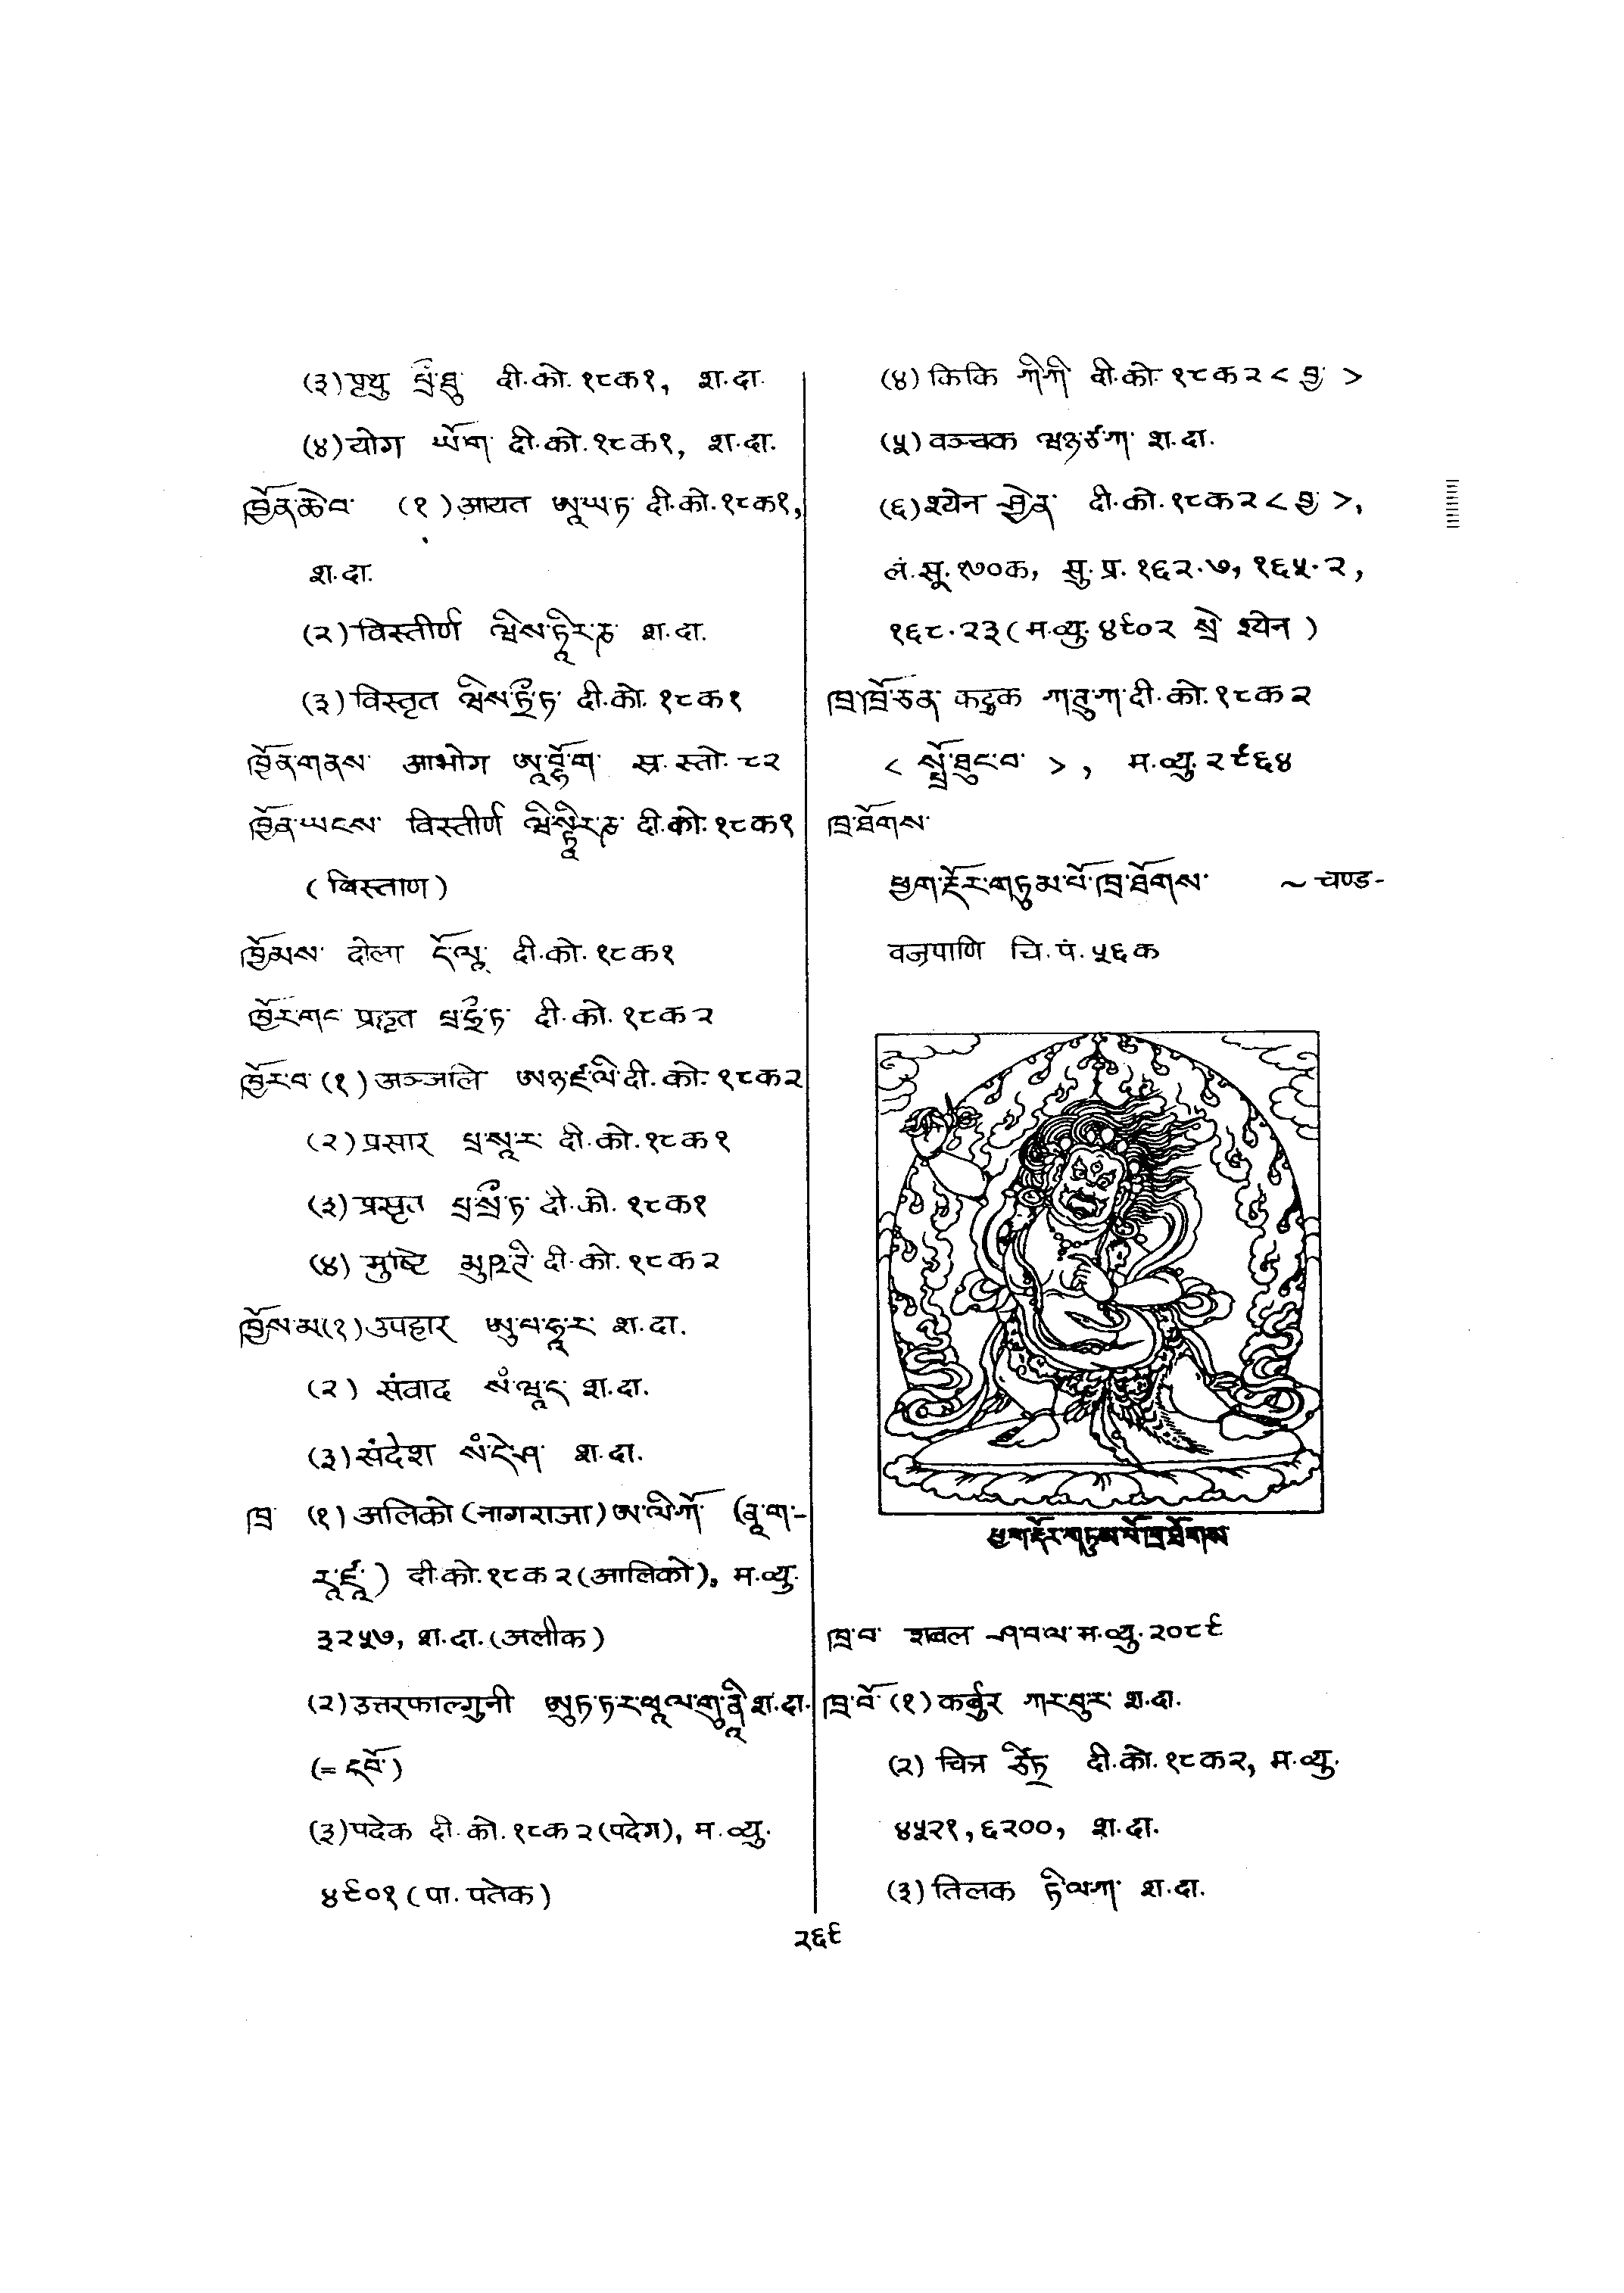 (३) पृथु པྲྀ་ཐུ་ दी.को. १८क१, श.दा.
(४) योग ཡོ་ག་ दी.को. १८क१, श.दा.
ཁྱོན་ཆེ་བ་ (१) आयत ཨཱ་ཡ་ཏ་ दी.को. १८क१,
श.दा.
(२) विस्तीर्ण ཝི་ས་ཏཱི་ར་ཎ་ श.दा.
(३) विस्तृत ཝི་ས་ཏྲྀ་ཏ་ दी.को. १८क१
ཁྱོན་གནས་ आभोग ཨཱ་བྷོ་ག་ स्र. स्तो. ८२
ཁྱོན་ཡངས་ विस्तीर्ण ཝི་སྟཱི་ར་ཎ་ दी.को. १८क१
(विस्ताण)
ཁྱོམས་ दोला དོ་ལཱ་ दी.को. १८क१
ཁྱོར་གང་ प्रहृत པྲ་ཧྲྀ་ཏ་ दी.को. १८क२
ཁྱོར་བ་ (१) अञ्जलि ཨ་ཉ་ཛ་ལི་ दी.को. १८क२
(२) प्रसार པྲ་སཱ་ར་ दी.को. १८क१
(३) प्रसृत པྲ་སྲྀ་ཏ་ दी.को. १८क१
(४) मुष्टि མུ་ཥ་ཊི་ दी.को. १८क२
ཁྱོས་མ་ (१) उपहार ཨུ་པ་ཧཱ་ར་ श.दा.
(२) संवाद སཾ་ཝཱ་ད་ श.दा.
(३) संदेश སཾ་དེ་ཤ་ श.दा.
ཁྲ་ (१) अलिको (नागराजा) ཨ་ལི་ཀོ་ (ནཱ་ག་-
རཱ་ཛཱ་) दी.को. १८क२ (आलिको), म.व्यु.
३२५७, श.दा. (अलीक)
(२) उत्तरफाल्गुनी ཨུ་ཏ་ཏ་ར་ཕཱ་ལ་གུ་ནཱི་ श.दा.
(= དབོ་)
(३) पदेक दी.को. १८क२ (पदेग), म.व्यु.
४९०१ (पा. पतेक)
(४) किकि ཀི་ཀི་ दी.को. १८क२ < བྱ་ >
(५) वञ्चक ཝ་ཉ་ཙ་ཀ་ श.दा.
(६) श्येन ཤྱེ་ན་ दी.को. १८क२ < བྱ་ >,
लं.सू. १७०क, सु.प्र. १६२.७, १६५.२,
१६८.२३ (म.व्यु. ४९०२ སྲེ་ श्येन)
ཁྲ་ཁྲོ་ཅན་ कद्रुक ཀ་དྲུ་ཀ་ दी.को. १८क२
< སྤྲོ་ཐུང་བ་ >, म.व्यु. २९६४
ཁྲ་ཐོགས་
ཕྱག་རྡོར་གཏུམ་པོ་ཁྲ་ཐོགས་ ~ चण्ड-
वज्रपाणि चि.पं. ५६क
ཕྱག་རྡོར་གཏུམ་པོ་ཁྲ་ཐོགས་
ཁྲ་བ་ शबल ཤ་བ་ལ་ म.व्यु. २०८९
ཁྲ་བོ་ (१) कर्बुर ཀ་ར་བུ་ར་ श.दा.
(२) चित्र ཙི་ཏྲ་ दी.को. १८क२, म.व्यु.
४५२१, ६२००, श.दा.
(३) तिलक ཏི་ལ་ཀ་ श.दा.
२६९